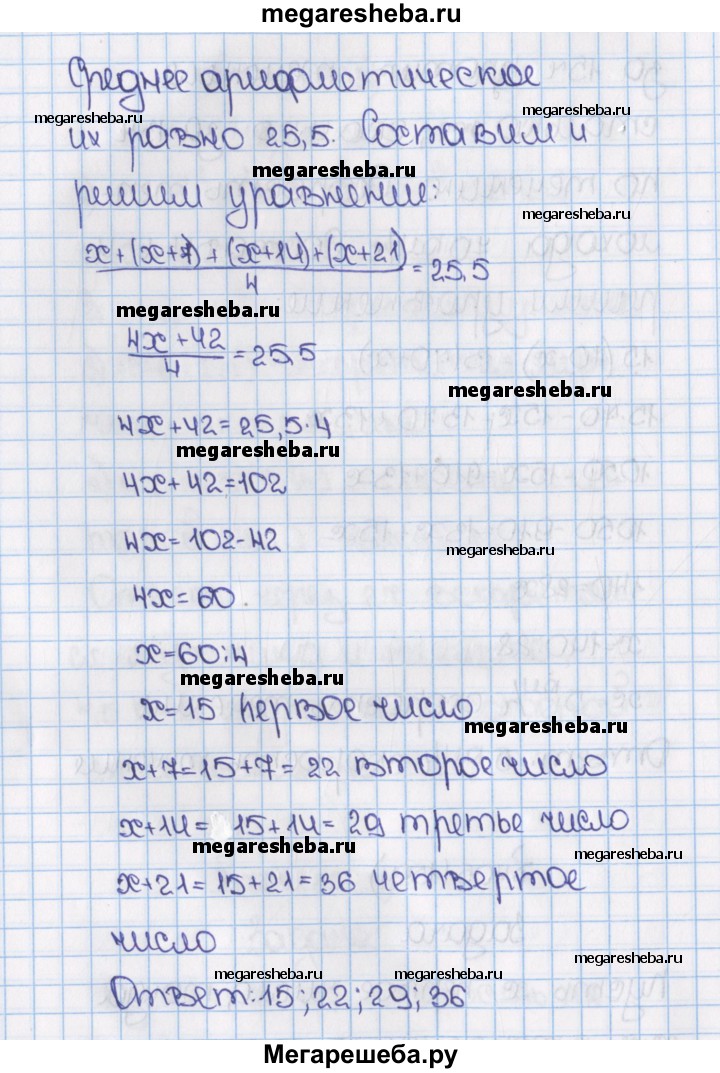 megaresheba.ru
Среднее арифметическое
megaresheba.ru
megaresheba.ru
их равно 25,5. Составим и
megaresheba.ru
решим уравнение:
megaresheba.ru
x+(x+7)+(x+14)+(x+21)
4
=25,5
megaresheba.ru
4x+42
4
=25,5
megaresheba.ru
4x+42=25,5·4
megaresheba.ru
4x+42=102
4x=102-42
megaresheba.ru
4x=60.
x=60:4
megaresheba.ru
x=15 первое число
megaresheba.ru
x+7=15+7=22 второе число
x+14= 15+14=29 третье число
megaresheba.ru
megaresheba.ru
x+21=15+21=36 четвертое
число
megaresheba.ru
megaresheba.ru
Ответ:15;22;29;36
megaresheba.ru
Мегарешеба.ру